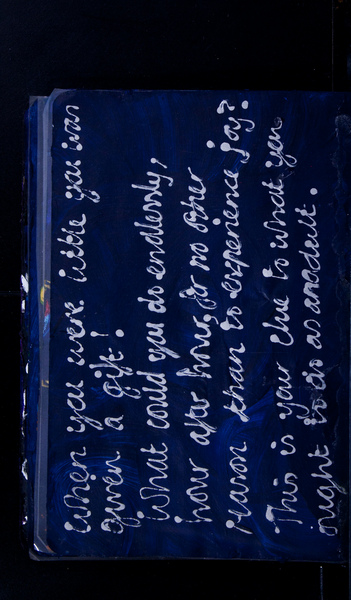 When you were little you was
given a gift!
What could you do endlessly,
hour after hour, for no other
reason than to experience joy?
This is your clue to what you
ought to do as an adult.